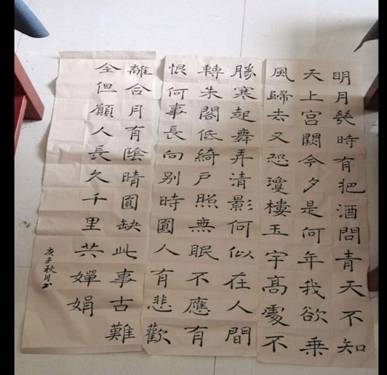 明月幾時有把酒問青天不知
天上宮闕今夕是何年我欲乘
風歸去又恐瓊樓玉宇高處不
勝寒起舞弄清影何似在人間
轉朱閣低綺戶照無眠不應有
恨何事長向別時圓人有悲歡
離合月有陰晴圓缺此事古難
全但願人長久千里共嬋娟
庚子秋月书